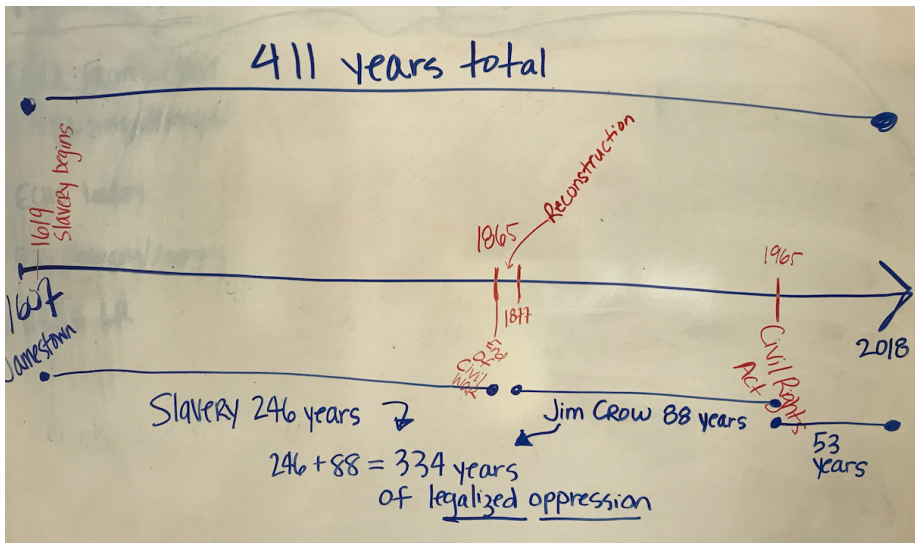 411 years total
1619
Slavery begins
Reconstruction
1865
1877
1965
1607
Jamestown
2018
Civil
War
Civil Rights
Act
Slavery 246 years
Jim Crow 88 years
53
years
246 + 88 = 334 years
of legalized oppression